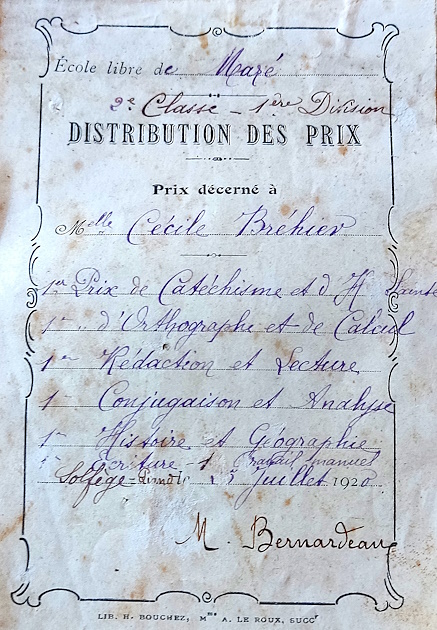 École libre de Mazé
2e Classe - 1ère Division
DISTRIBUTION DES PRIX
Prix décerné à
Melle Cécile Bréhier
1er Prix de Catéchisme et d'H. Sainte
1er .. d'Orthographe et de Calcul
1er Rédaction et Lecture
1 Conjugaison et Analyse
1er Histoire et Géographie
1er Ecriture - 1 Travail manuel
Solfège - Juillet 1920
M. Bernardeau
LIB. H. BOUCHEZ, Mme A. LE ROUX, SUCCr